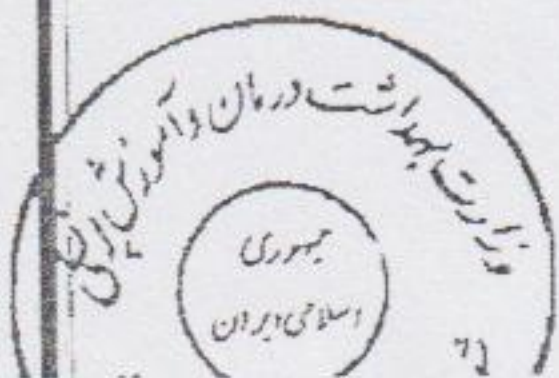 وزارت بهداشت درمان و آموزش پزشکی
جمهوری
اسلامی ایران